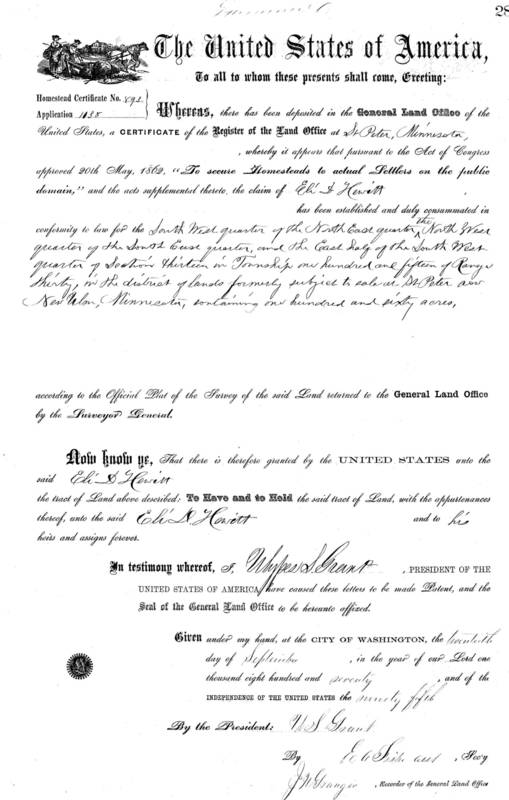 28
The United States of America,
To all to whom these presents shall come, Greeting:
Homestead Certificate No. 892
Application 1138
Whereas, there has been deposited in the General Land Office of the
United States, a CERTIFICATE of the Register of the Land Office at St Peter, Minnesota,
, whereby it appears that pursuant to the Act of Congress
approved 20th May, 1862, "To secure Homesteads to actual Settlers on the public
domain," and the acts supplemental thereto, the claim of Eli D Hewitt
has been established and duly consummated in
conformity to law for the South West quarter of the North East quarter, the North West
quarter of the South East quarter, and the East half of the South West
quarter of Section thirteen in Township one hundred and fifteen of Range
thirty, in the district of lands formerly subject to sale at St Peter now
New Ulm, Minnesota, containing one hundred and sixty acres,
according to the Official Plat of the Survey of the said Land returned to the General Land Office
by the Surveyor General.
Now know ye, That there is therefore granted by the UNITED STATES unto the
said Eli D Hewitt
the tract of Land above described: To Have and to Hold the said tract of Land, with the appurtenances
thereof, unto the said Eli D Hewitt and to his
heirs and assigns forever.
In testimony whereof, I, Ulysses S Grant, PRESIDENT OF THE
UNITED STATES OF AMERICA, have caused these letters to be made Patent, and the
Seal of the General Land Office to be hereunto affixed.
Given under my hand, at the CITY OF WASHINGTON, the twentieth
day of September, in the year of our Lord one
thousand eight hundred and seventy, and of the
INDEPENDENCE OF THE UNITED STATES the ninety fifth
By the President: U S Grant
By Secy
J N Granger, Recorder of the General Land Office